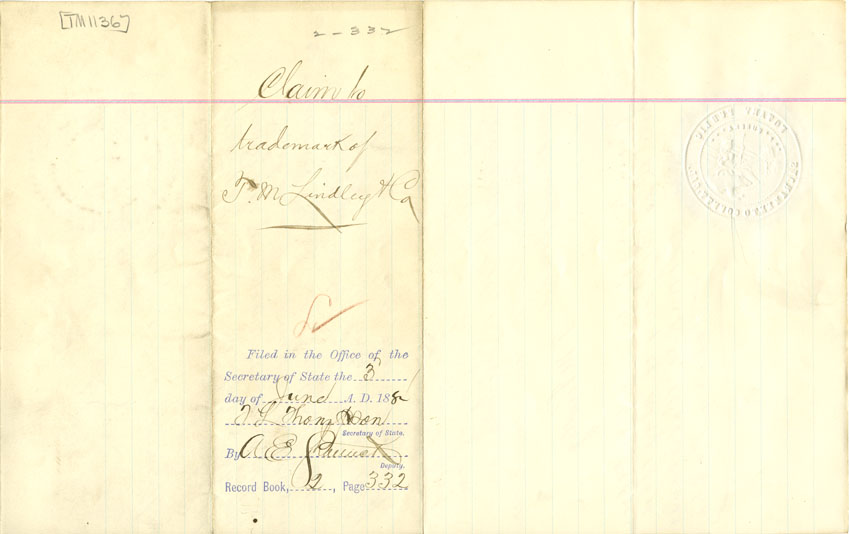 [TM1136]
2-332
Claim to
trademark of
T. M. Lindley & Co
Filed in the Office of the
Secretary of State the 3
day of June A. D. 188
Thompson
Secretary of State.
By A E
Deputy.
Record Book, 2, Page 332